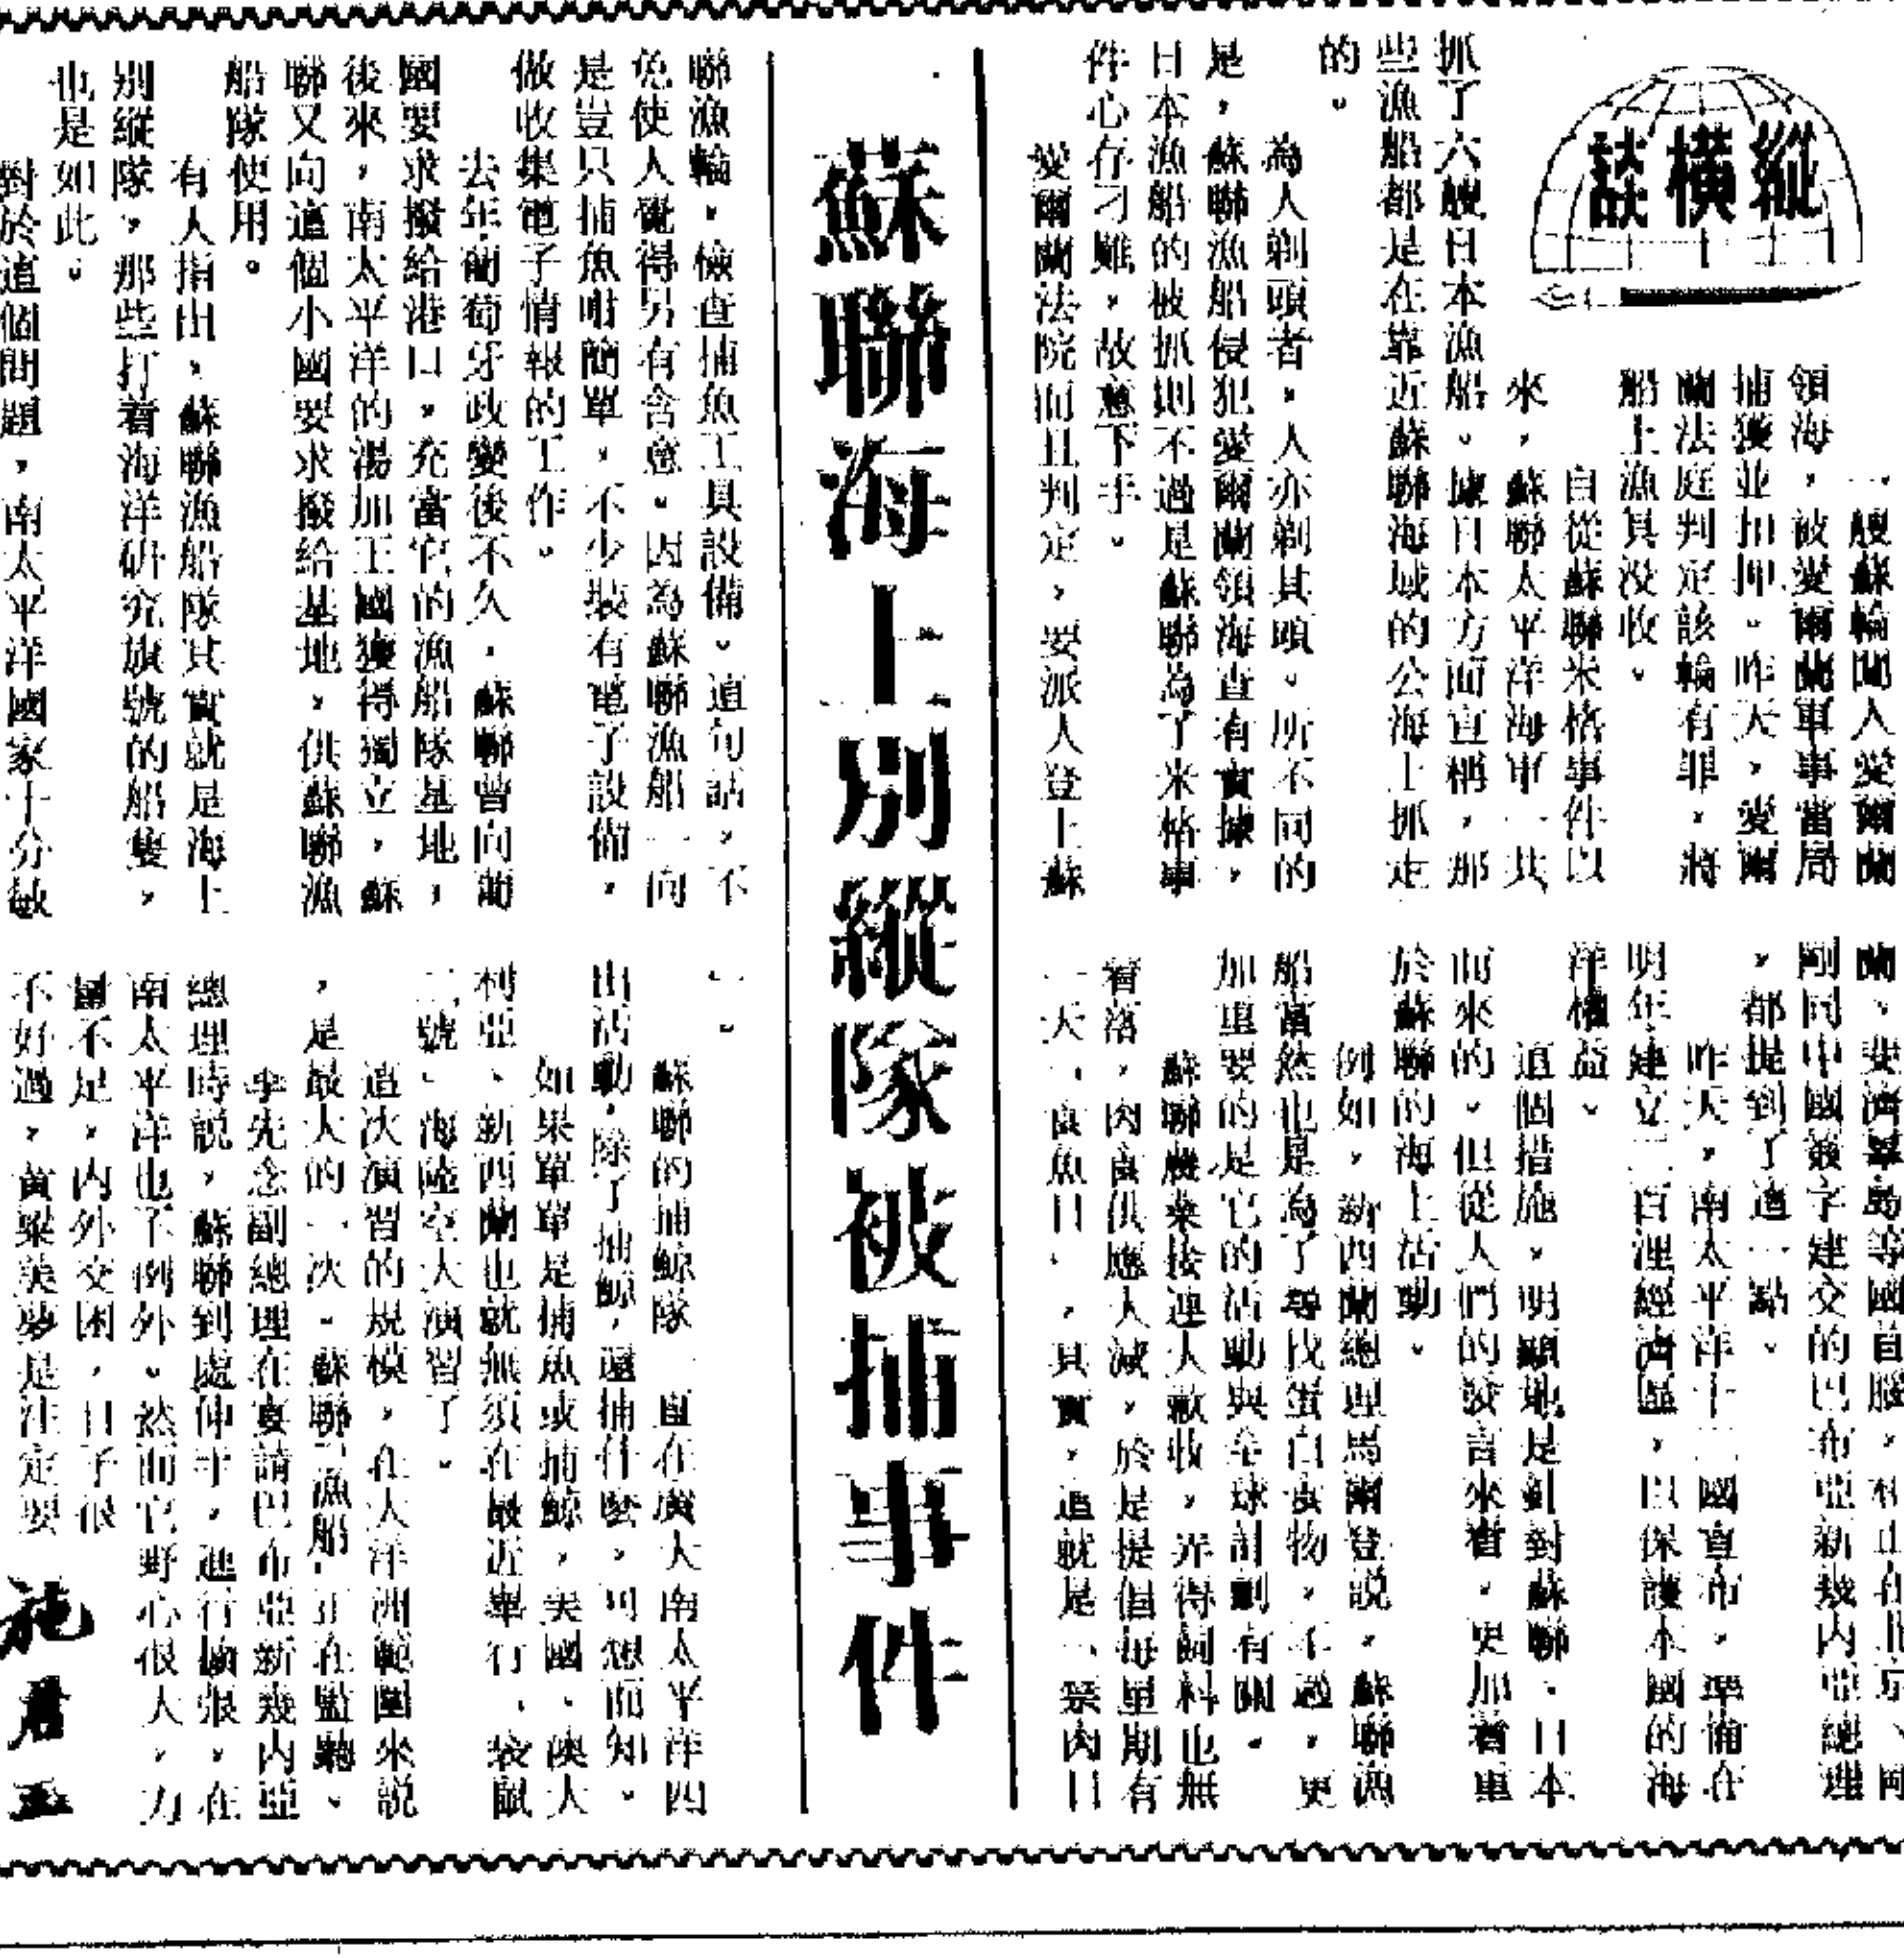 縱橫談
蘇聯海上別縱隊被捕事件
一艘蘇輪闖入愛爾蘭
領海，被愛爾蘭軍事當局
捕獲並扣押。昨天，愛爾
蘭法庭判定該輪有罪，將
船上漁具没收。
自從蘇聯米格事件以
來，蘇聯太平洋海軍一共
抓了六艘日本漁船。據日本方面宣稱，那
些漁船都是在靠近蘇聯海域的公海上抓走
的。
為人剃頭者，人亦剃其頭。所不同的
是，蘇聯漁船侵犯愛爾蘭領海查有實據，
日本漁船的被抓則不過是蘇聯為了米格事
件心存刁難，故意下手。
愛爾蘭法院而且判定，要派人登上蘇
聯漁輪，檢查捕魚工具設備。這句話，不
免使人覺得另有含意。因為蘇聯漁船一向
是豈只捕魚咁簡單，不少裝有電子設備，
做收集電子情報的工作。
去年葡萄牙政變後不久，蘇聯曾向葡
國要求撥給港口，充當它的漁船隊基地，
後來，南太平洋的湯加王國獲得獨立，蘇
聯又向這個小國要求撥給基地，供蘇聯漁
船隊使用。
有人指出，蘇聯漁船隊其實就是海上
別縱隊，那些打着海洋研究旗號的船隻，
也是如此。
對於這個問題，南太平洋國家十分敏
蘭、斐濟羣島等國首腦，和正在北京、剛
剛同中國簽字建交的巴布亞新幾內亞總理
，都提到了這一點。
昨天，南太平洋十二國宣布，準備在
明年建立二百浬經濟區，以保護本國的海
洋權益。
這個措施，明顯地是針對蘇聯、日本
而來的。但從人們的發言來看，更加着重
於蘇聯的海上活動。
例如，新西蘭總理馬爾登説，蘇聯漁
船當然也是為了尋找蛋白食物，不過，更
加重要的是它的活動與全球計劃有關。
蘇聯農業接連大歉收，弄得飼料也無
着落，肉食供應大減，於是提倡每星期有
一天「食魚日」，其實，這就是「禁肉日
」。
蘇聯的捕鯨隊一直在廣大南太平洋四
出活動，除了捕鯨，還捕什麼，可想而知。
如果單單是捕魚或捕鯨，美國、澳大
利亞、新西蘭也就無須在最近舉行「袋鼠
二號」海陸空大演習了。
這次演習的規模，在大洋洲範圍來説
，是最大的一次。蘇聯「漁船」正在監聽。
李先念副總理在宴請巴布亞新幾內亞
總理時説，蘇聯到處伸手，進行擴張，在
南太平洋也不例外。然而它野心很大，力
量不足，內外交困，日子很
不好過，黃粱美夢是注定要
施君玉